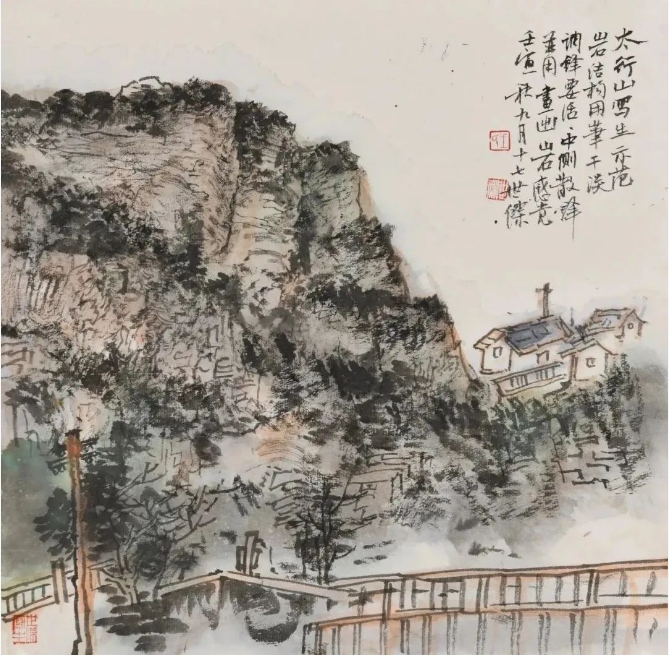 太行山写生示范
岩结构用筆干淡
调锋要活、中侧散锋
並用畫出山石感觉
壬寅秋九月十七世傑